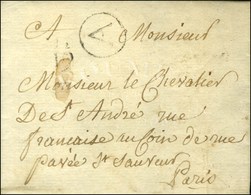 A Monsieur
V
Monsieur le Chevalier
De St André rue
françoise au Coin de rue
pavée St Sauveur
Paris